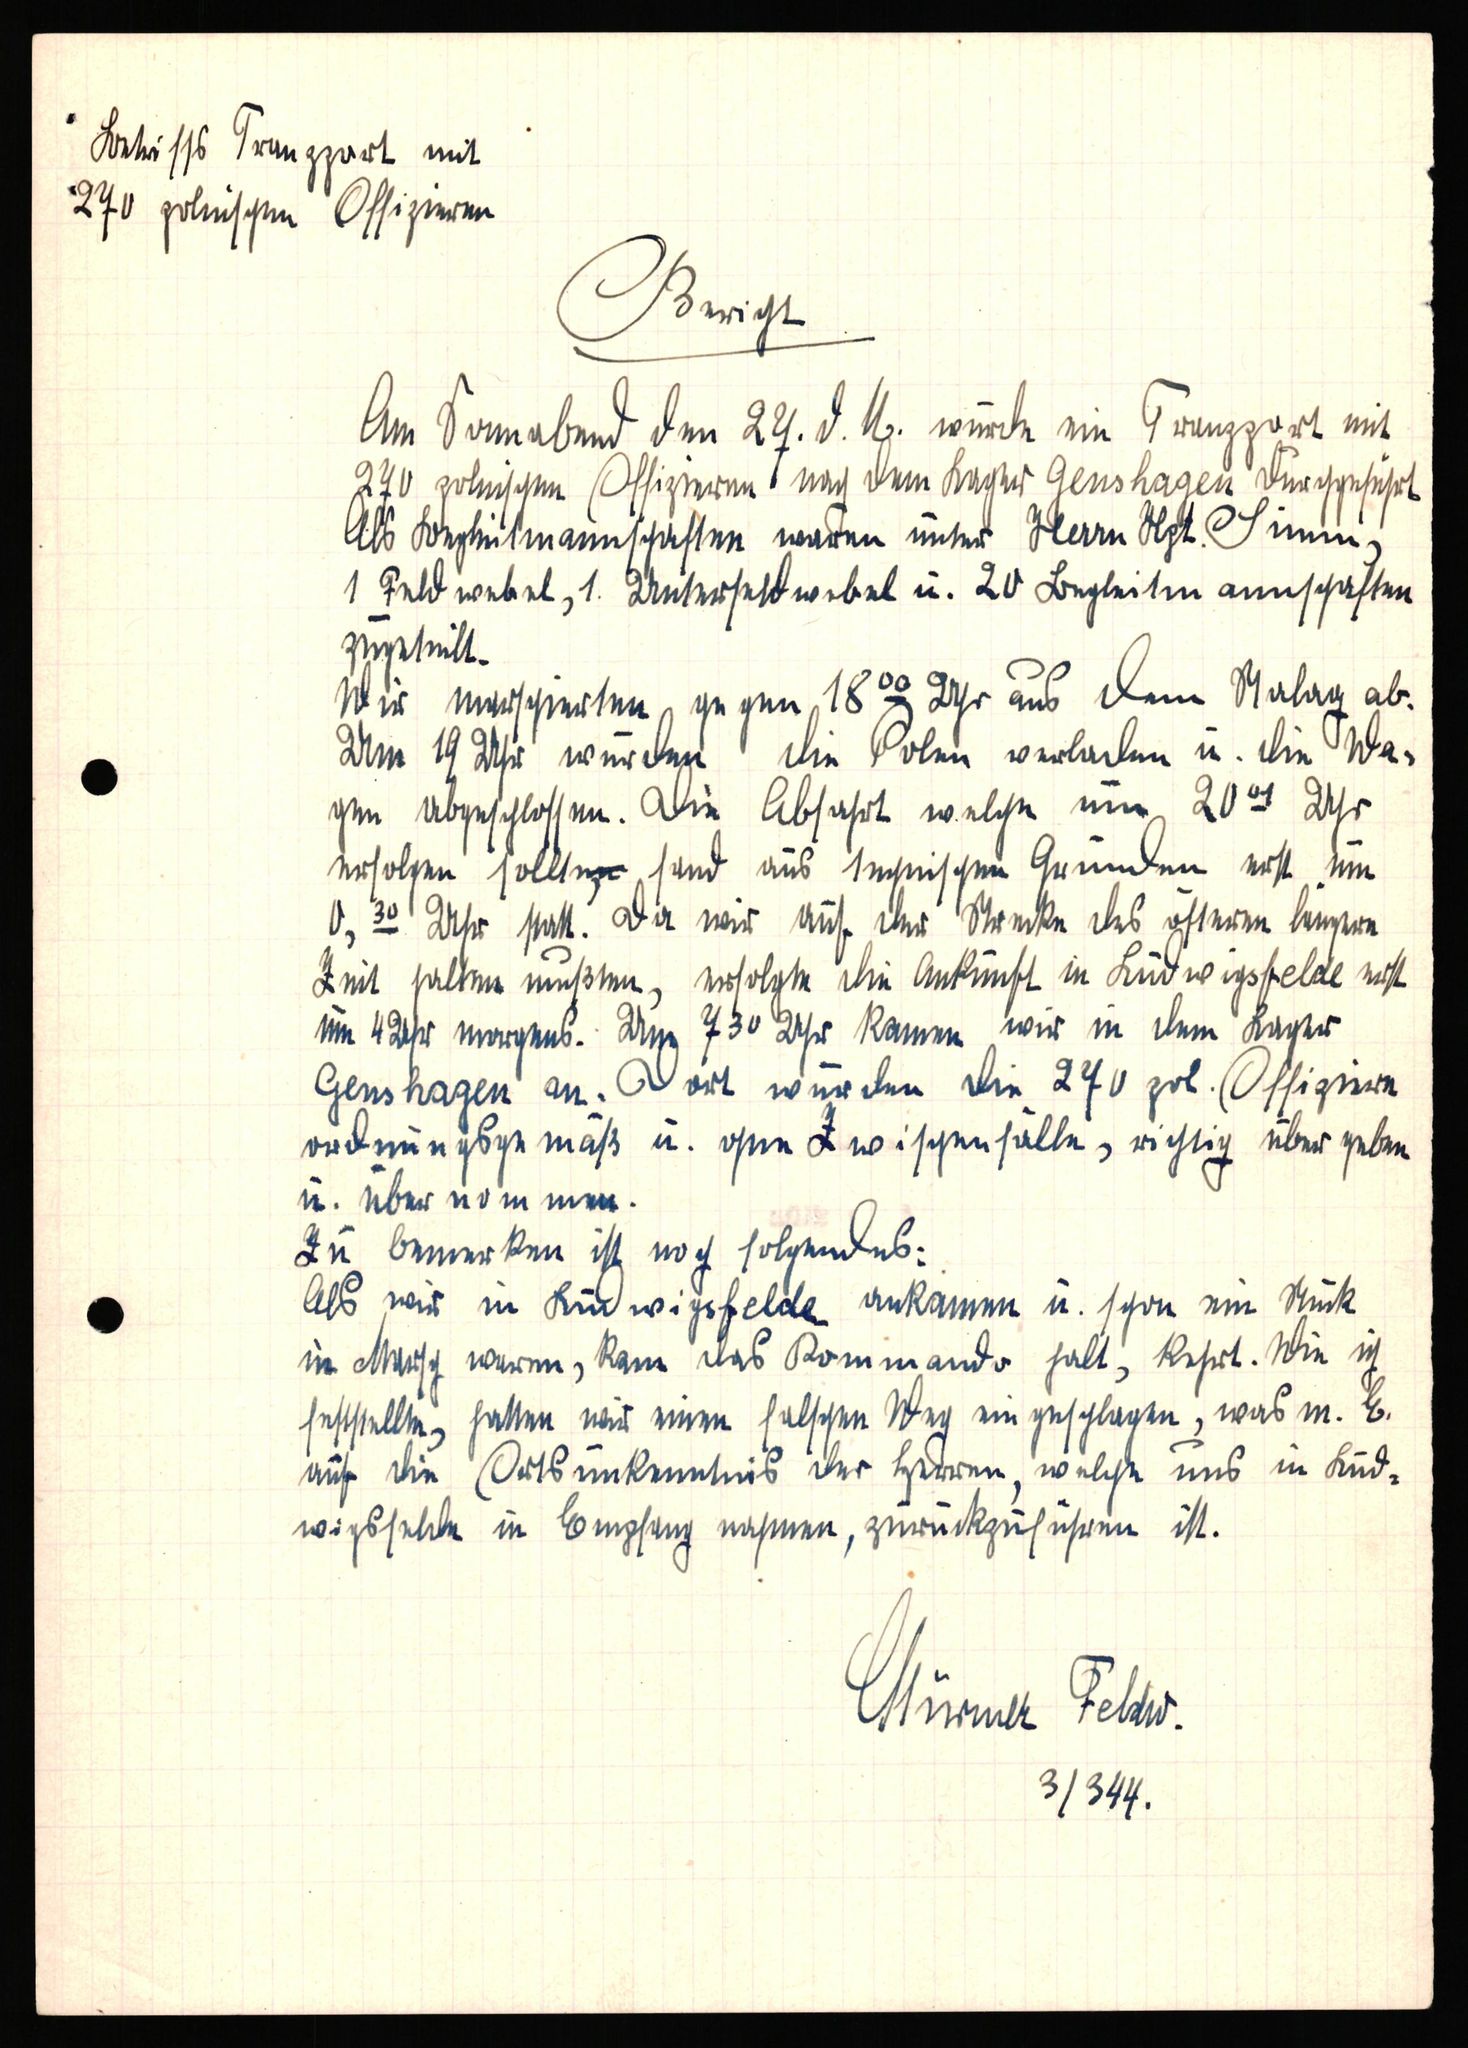 Betriffs Transport mit
270 polnischen Offizieren
Bericht
Am Sonnabend den 27. d. M. wurde ein Transport mit
270 polnischen Offizieren nach dem Lager Genshagen durchgeführt
Als Begleitmannschaften waren unter Herrn Hpt. Simm,
1 Feldwebel, 1. Unterfeldwebel u. 20 Begleitmannschaften
zugeteilt.
Wir marschierten gegen 18 00 Uhr aus dem Stalag ab.
Um 19 Uhr wurden die Polen verladen u. die Wa-
gen abgeschlossen. Die Abfahrt welche um 20 01 Uhr
erfolgen sollte fand aus technischen Gründen erst um
0,30 Uhr statt. Da wir auf der Strecke des öfteren längere
Zeit halten mußten, erfolgte die Ankunft in Ludwigsfelde erst
um 4 Uhr morgens. Um 7 30 Uhr kamen wir in dem Lager
Genshagen an. Dort wurden die 270 pol. Offiziere
ordnungsgemäß u. ohne Zwischenfälle, richtig übergeben
u. übernommen.
Zu bemerken ist noch folgendes:
Als wir in Ludwigsfelde ankamen u. schon ein Stück
in Marsch waren, kam das Kommando halt, kehrt. Wie ich
feststellte, hatten wir einen falschen Weg eingeschlagen, was m. E.
auf die Ortsunkenntnis der Herren, welche uns in Lud-
wigsfelde in Empfang nahmen, zurückzuführen ist.
Stürmer Feldw.
3/344.